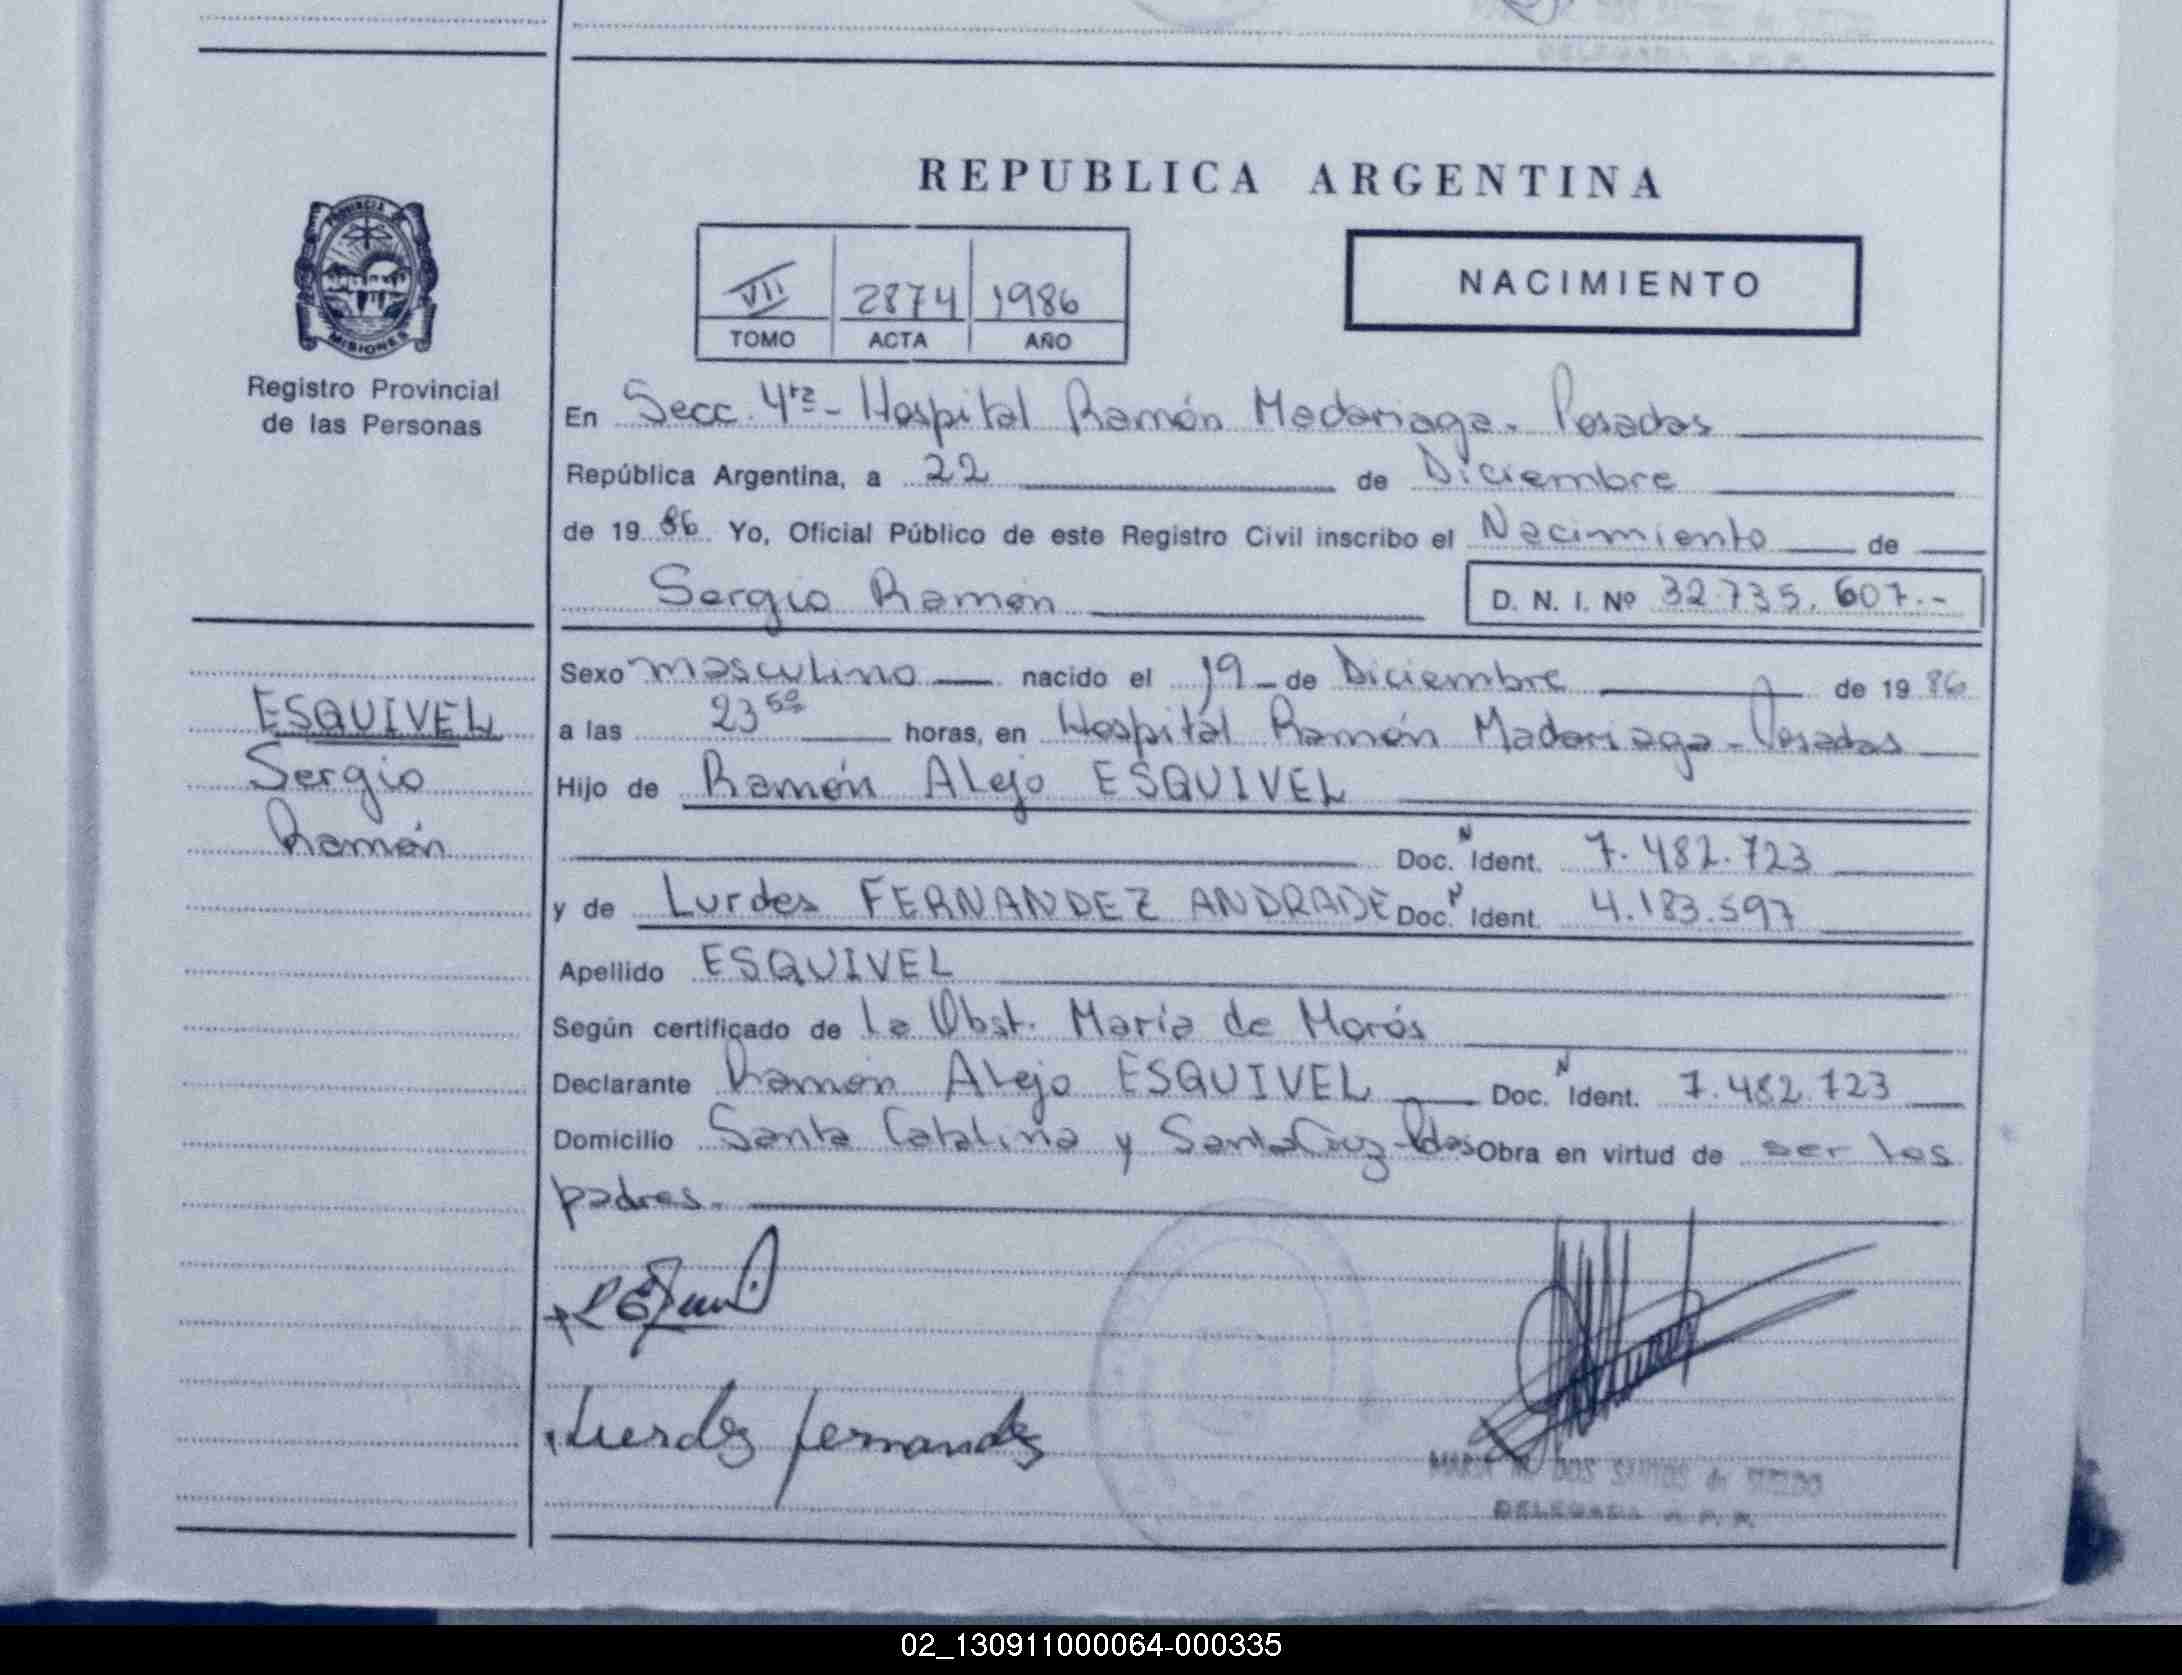 REPUBLICA ARGENTINA
PROVINCIA DE
MISIONES
Registro Provincial
de las Personas
VII 2874 1986
TOMO ACTA AÑO
NACIMIENTO
En Secc. 4ta - Hospital Ramón Madariaga - Posadas
República Argentina, a 22 de Diciembre
de 19 86 Yo, Oficial Público de este Registro Civil inscribo el Nacimiento de
Sergio Ramón D. N. I. Nº 32.735.607.-
Sexo masculino nacido el 19 de Diciembre de 19 86
a las 23 50 horas, en Hospital Ramón Madariaga - Posadas
Hijo de Ramón Alejo ESQUIVEL
Doc. N Ident. 7.482.723
y de Lurdes FERNANDEZ ANDRADE Doc. N Ident. 4.183.597
Apellido ESQUIVEL
Según certificado de la Obst. María de Morós
Declarante Ramón Alejo ESQUIVEL Doc. N Ident. 7.482.723
Domicilio Santa Catalina y Santa Cruz - Pdas Obra en virtud de ser los
padres.-
ESQUIVEL
Sergio
Ramón
Lurdes fernandez
MARIA DOS SANTOS de
DELEGADA R. P. P.
02_130911000064-000335